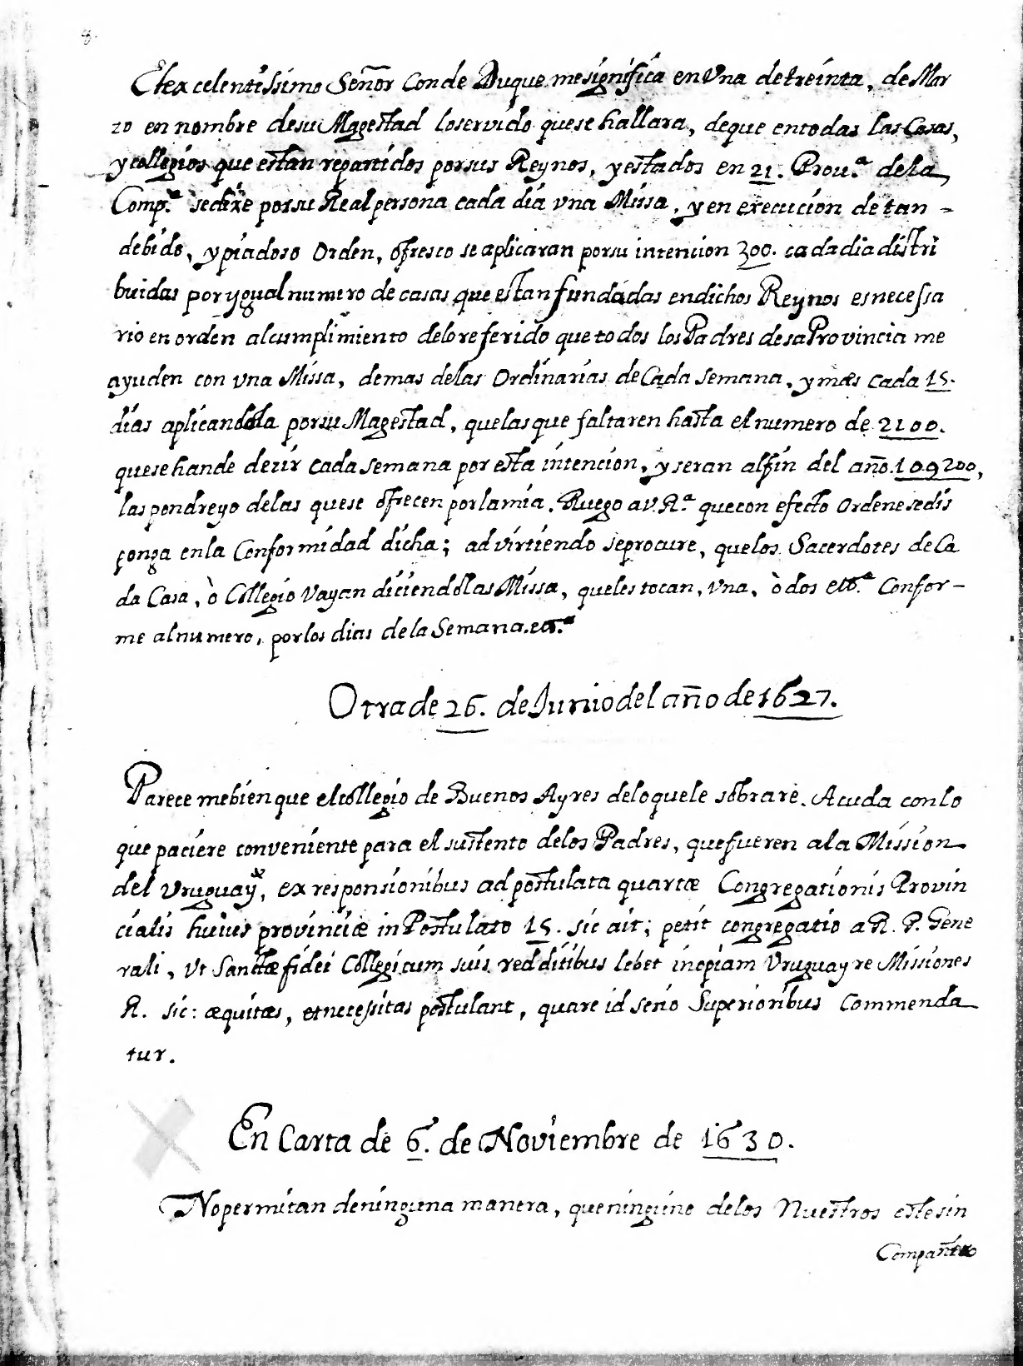 El excelentissimo Señor Conde Duque me significa en Una de treinta, de Mar
zo en nombre desu Magestad loservido quese hallara, deque entodas las Casas,
y collegios que estan repartidos porsus Reynos, y estados en 21. Prou.ª dela
Comp.ª sedixe porsu Real persona cada dia vna Missa, y en execucion de tan -
debido, y piadoso Orden, ofresco se aplicaran porsu intencion 300. cada dia distri
buidas por ygual numero de casas que estan fundadas endichos Reynos es necessa
rio en orden alcumplimiento delo referido que todos los Padres desa Provincia me
ayuden con vna Missa, demas delas Ordinarias de Cada semana, y mas cada 15.
dias aplicandola porsu Magestad, quelas que faltaren hasta el numero de 2100.
quese hande dezir cada semana por esta intencion, y seran alfin del año. 109200,
las pondre yo delas quese ofrecen por lamia. Ruego a V. R.ª que con efecto Ordene se dis
ponga enla Conformidad dicha; advirtiendo seprocure, quelos Sacerdotes de Ca
da Casa, ò Collegio Vayan diciendo las Missa, queles tocan, vna, ò dos etc.ª Confor-
me alnumero, por los dias dela Semana. etc.ª
Otra de 26. de Junio del año de 1627.
Parece me bien que el collegio de Buenos Ayres delo quele sobrare. Acuda con lo
que paciere conveniente para el sustento delos Padres, que fueren ala Mission
del Uruguay, ex responsionibus ad postulata quartæ Congregationis Provin
cialis huius provinciæ in Postulato 15. sic ait; petit congregatio a R. P. Gene
rali, Vt Sanctæ fidei Collegium suis redditibus lebet inopiam Uruguayre Missiones
R. sic: æquitas, et necessitas postulant, quare id serio Superioribus Commenda
tur.
En Carta de 6. de Noviembre de 1630.
No permitan de ninguna manera, que ninguno delos Nuestros este sin
Compañero